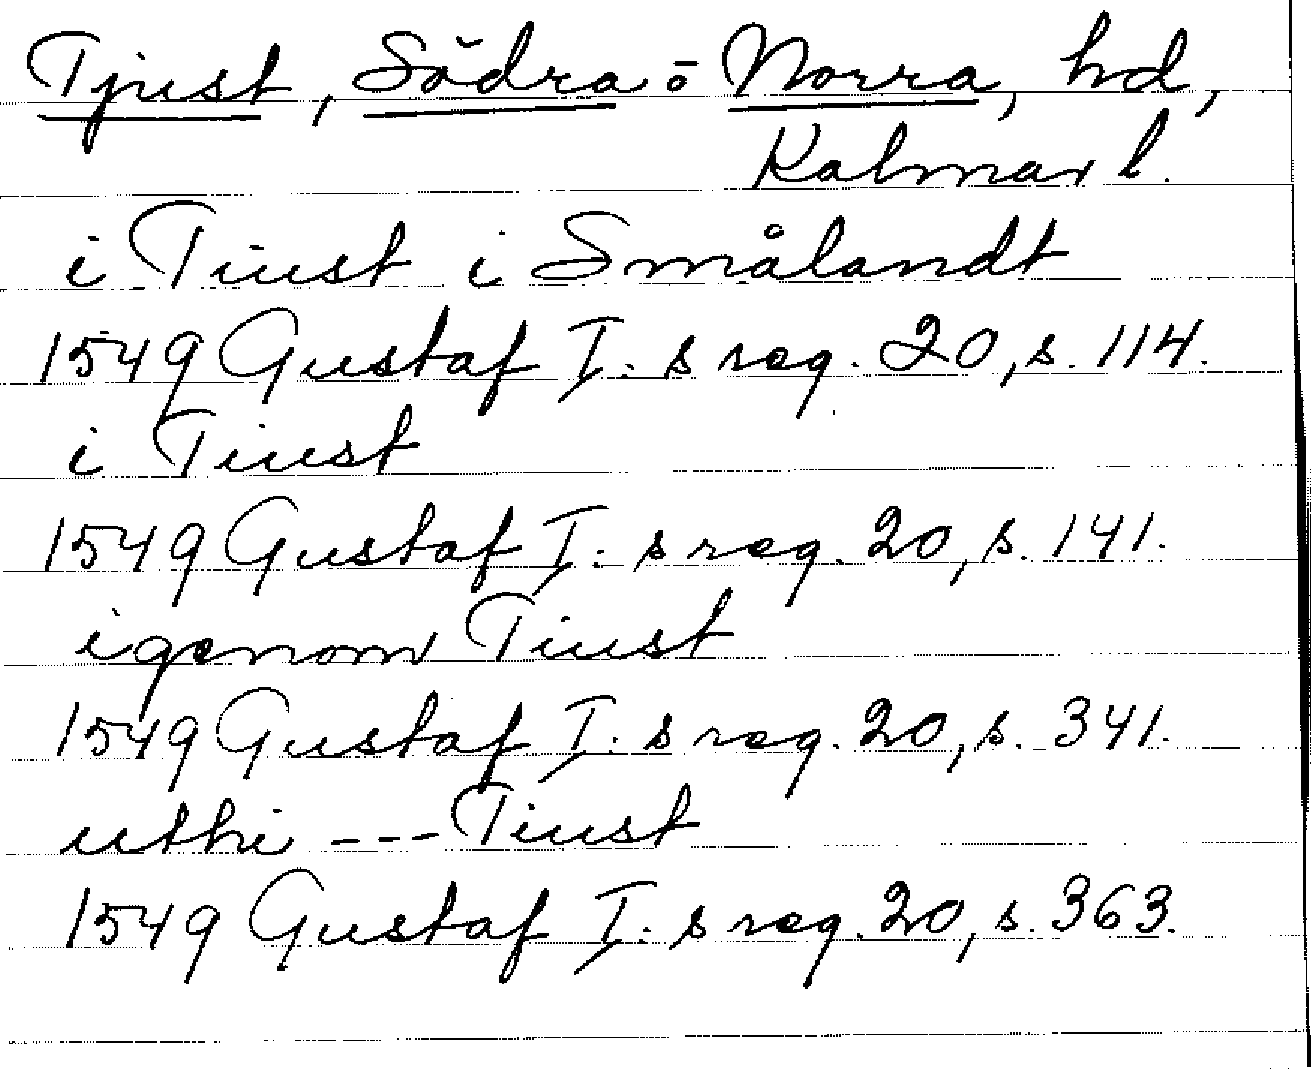 Tjust, Södra o Norra, hd,
Kalmar l.
i Tiust i Smålandt
1549 Gustaf I:s reg. 20, s. 114.
i Tiust
1549 Gustaf I:s reg. 20, s. 141.
igenom Tiust
1549 Gustaf I:s reg. 20, s. 341.
uthi --- Tiust
1549 Gustaf I:s reg. 20, s. 363.